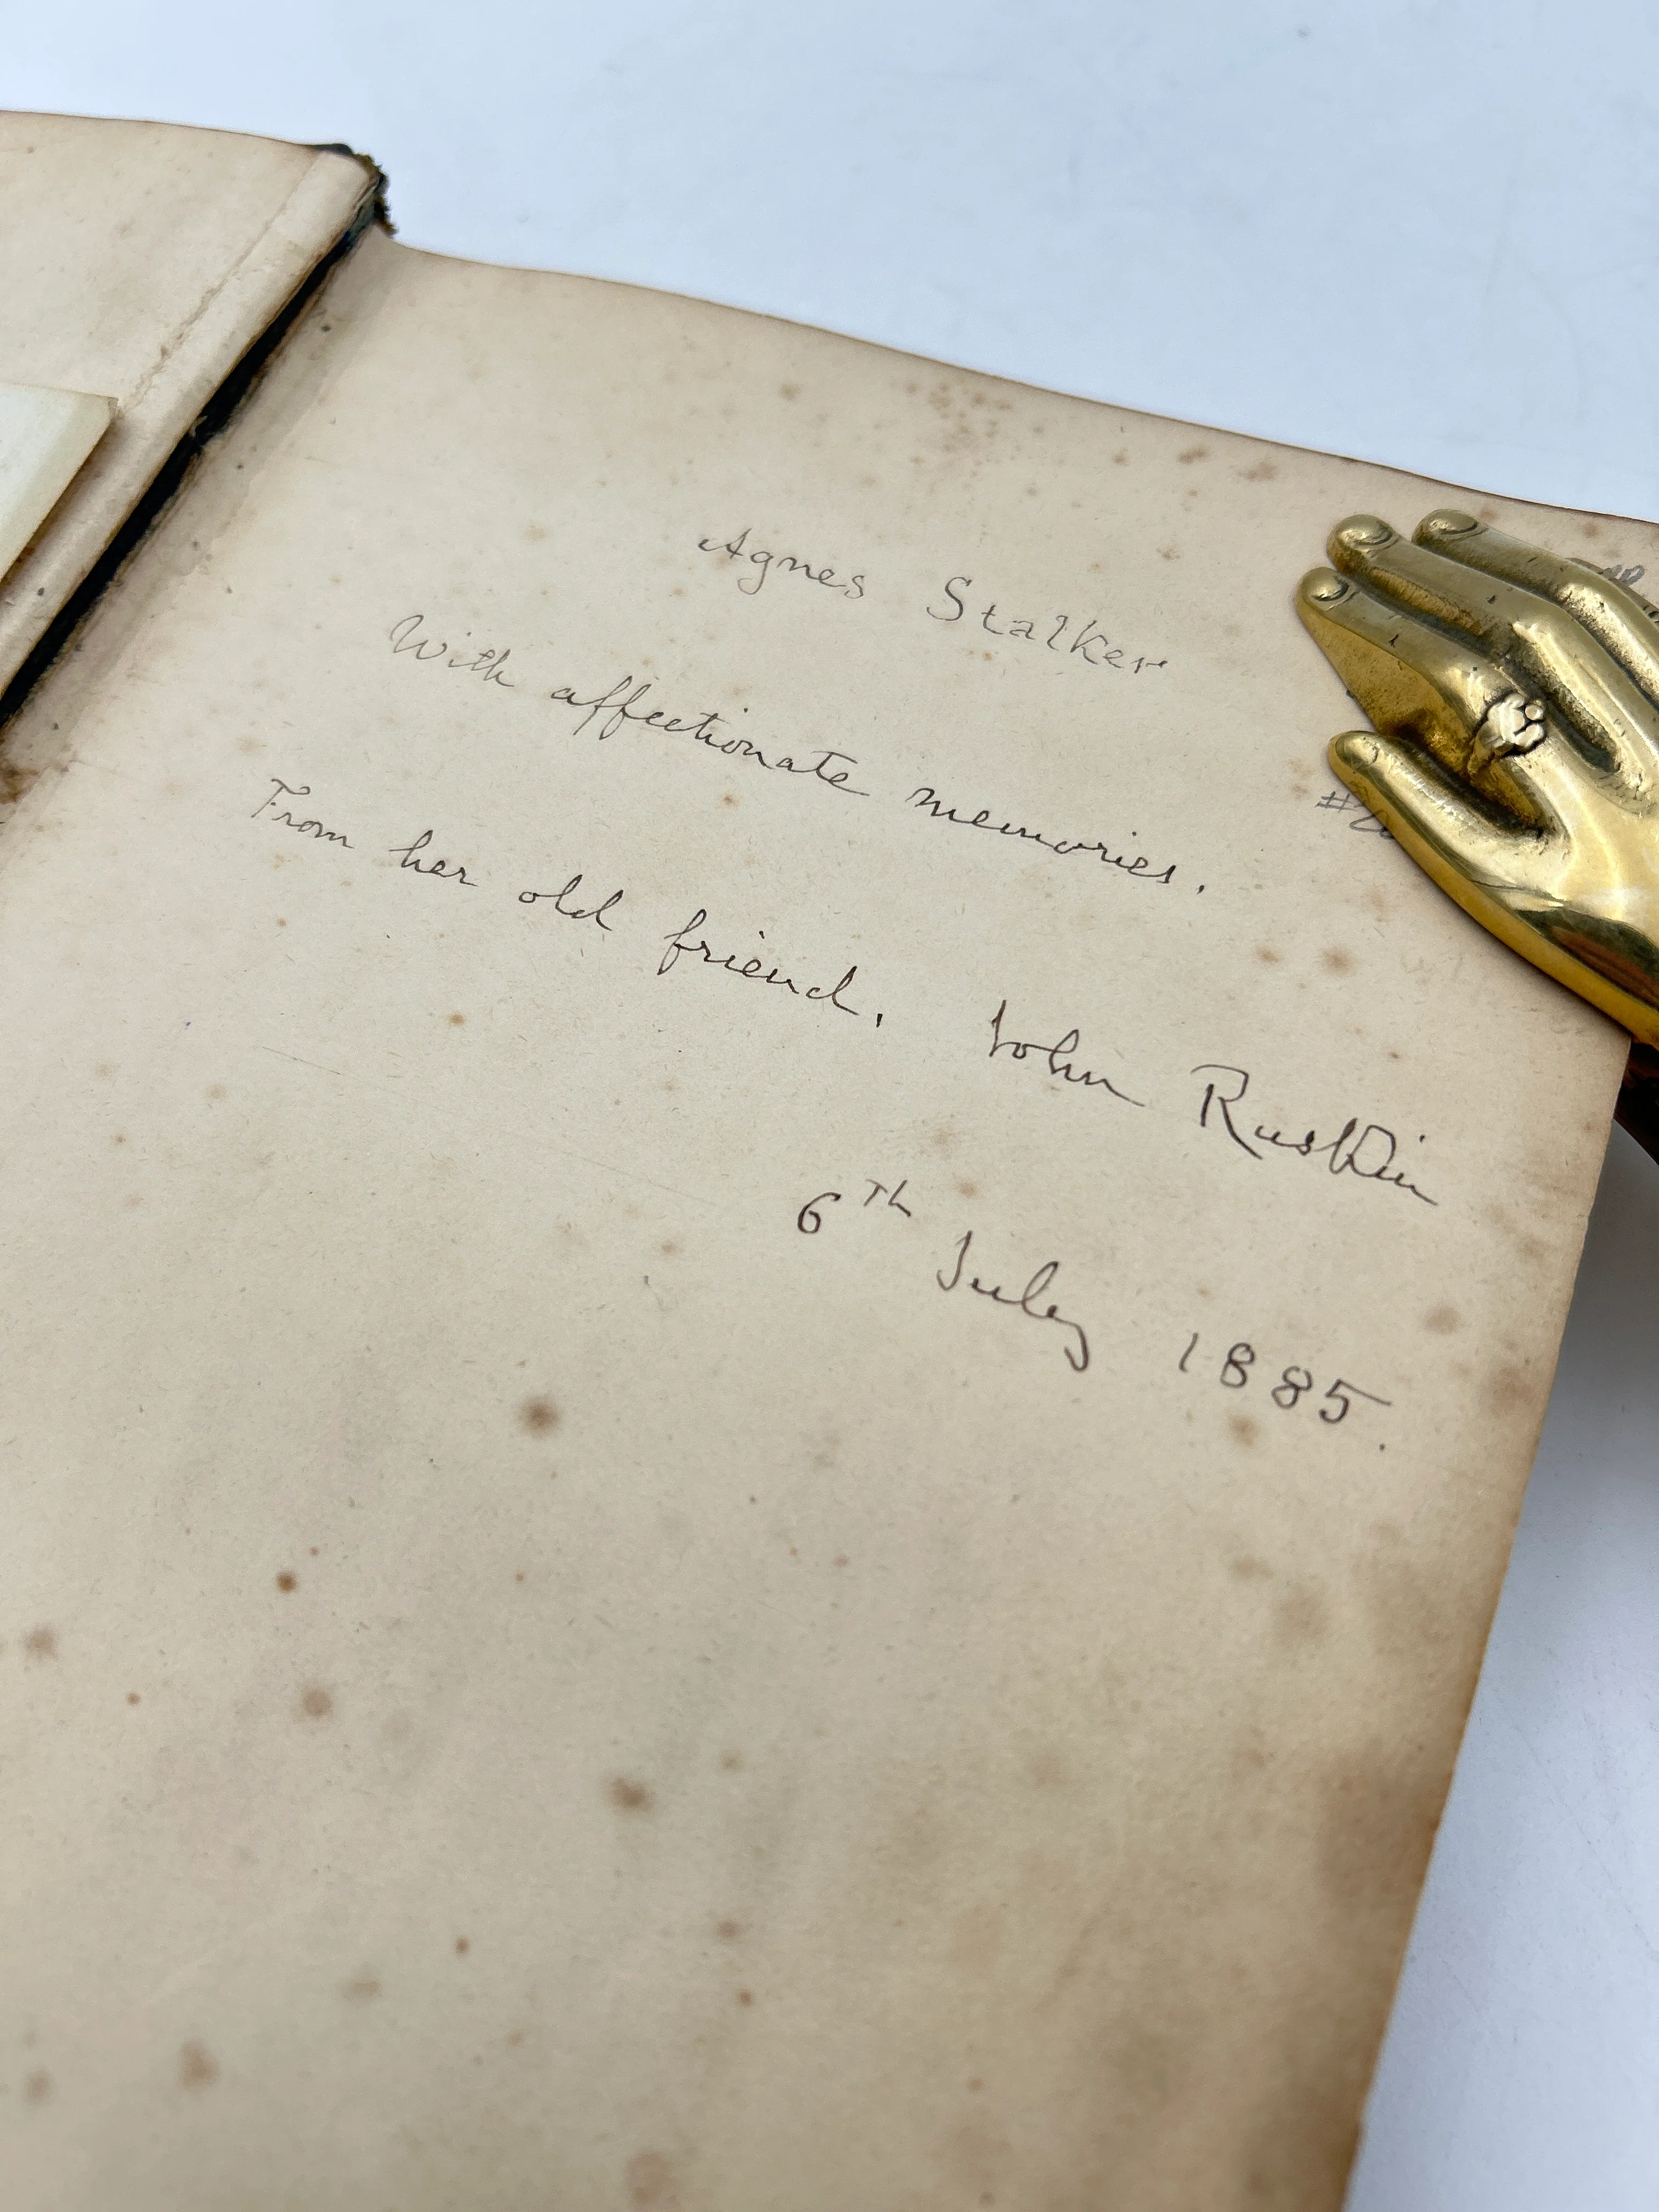 Agnes Stalker
With affectionate memories.
From her old friend. John Ruskin
6th July 1885.